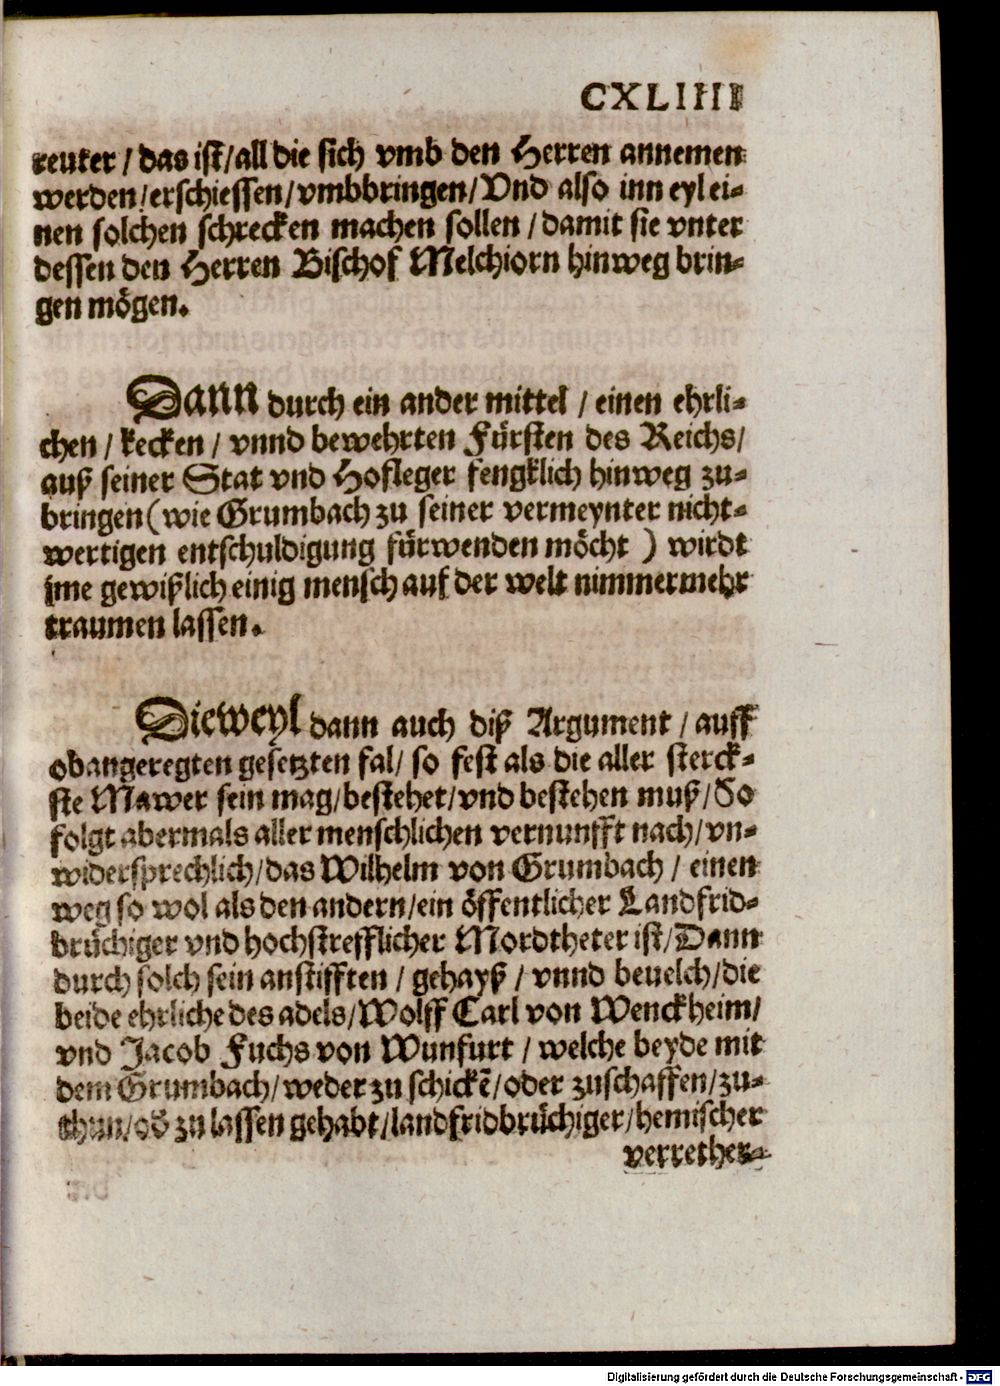 CXLIIII
reuter / das ist / all die sich vmb den Herren annemen
werden / erschiessen / vmbbringen / Vnd also inn eyl ei-
nen solchen schrecken machen sollen / damit sie vnter
dessen den Herren Bischof Melchiorn hinweg brin-
gen mögen.
Dann durch ein ander mittel / einen ehrli-
chen / kecken / vnnd bewehrten Fürsten des Reichs /
auß seiner Stat vnd Hofleger fengklich hinweg zu-
bringen (wie Grumbach zu seiner vermeynter nicht-
wertigen entschuldigung fürwenden möcht ) wirdt
jme gewißlich einig mensch auf der welt nimmermehr
traumen lassen.
Dieweyl dann auch diß Argument / auff
obangeregten gesetzten fal / so fest als die aller sterck-
ste Mawer sein mag / bestehet / vnd bestehen muß / So
folgt abermals aller menschlichen vernunfft nach / vn-
widersprechlich / das Wilhelm von Grumbach / einen
weg so wol als den andern / ein öffentlicher Landfrid-
brüchiger vnd hochstrefflicher Mordtheter ist / Dann
durch solch sein anstifften / gehayß / vnnd beuelch / die
beide ehrliche des adels / Wolff Carl von Wenckheim /
vnd Jacob Fuchs von Wunfurt / welche beyde mit
dem Grumbach / weder zu schickē / oder zuschaffen / zu-
thun / oď zu lassen gehabt / landfridbrüchiger / hemischer
verrether-
Digitalisierung gefördert durch die Deutsche Forschungsgemeinschaft - DFG